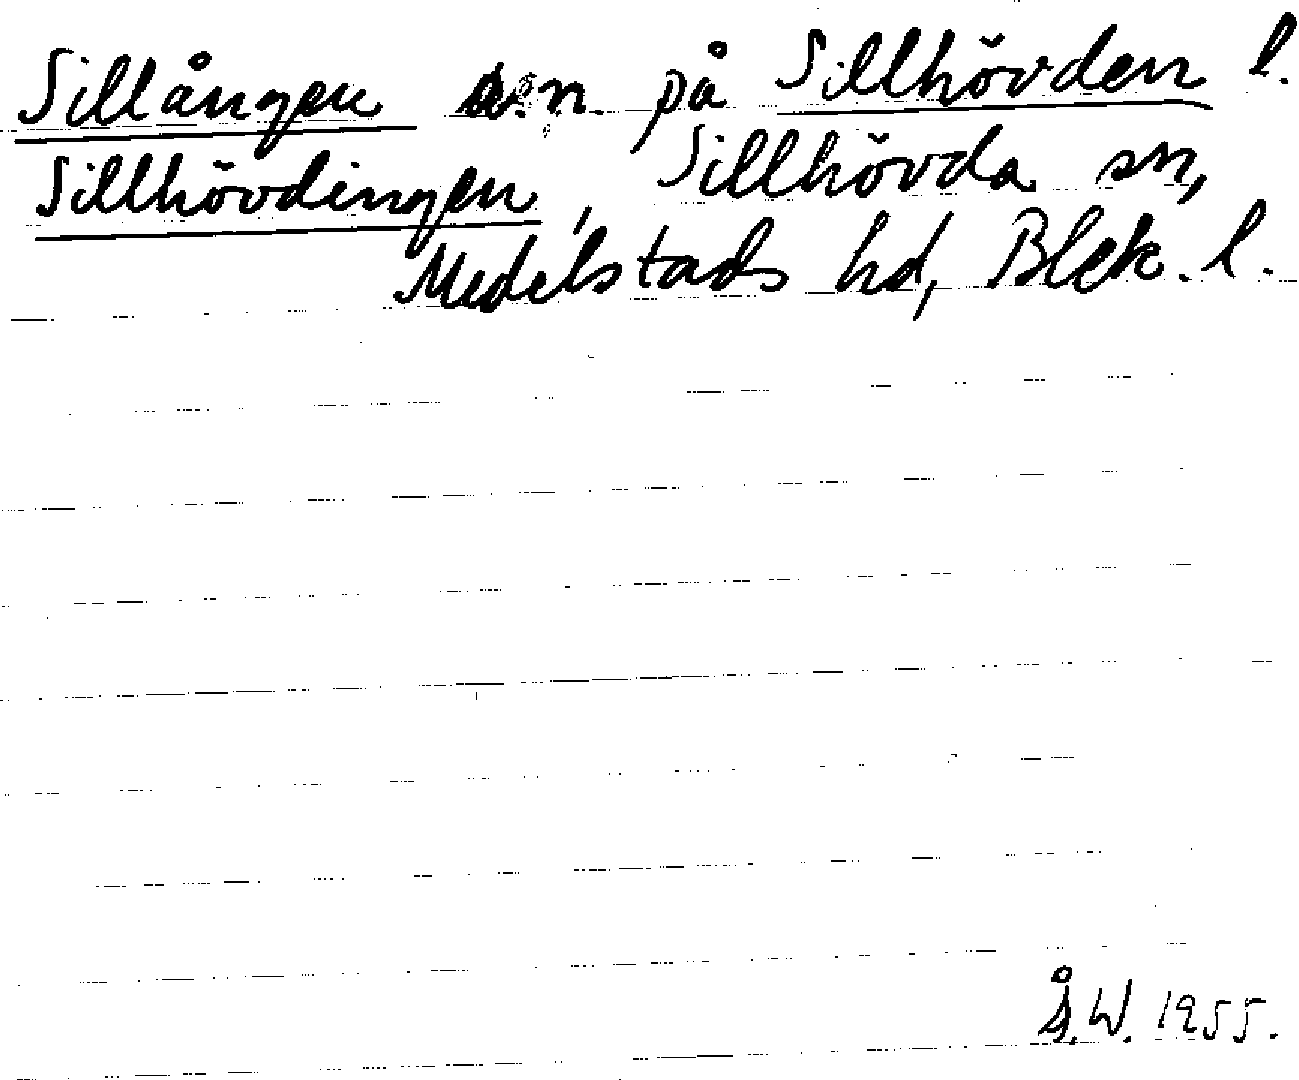 Sillången s.n. på Sillhövden l.
Sillhövdingen, Sillhövda sn,
Medelstads hd, Blek. l.
Å.W. 1955.